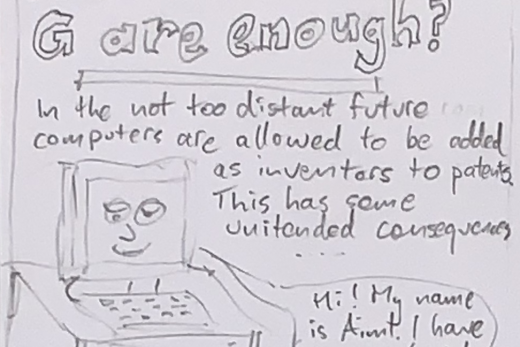 G are enough?
In the not too distant future
computers are allowed to be added
as inventors to patents.
This has some
unitended consequences
....
Hi! My name
is Aimt. I have